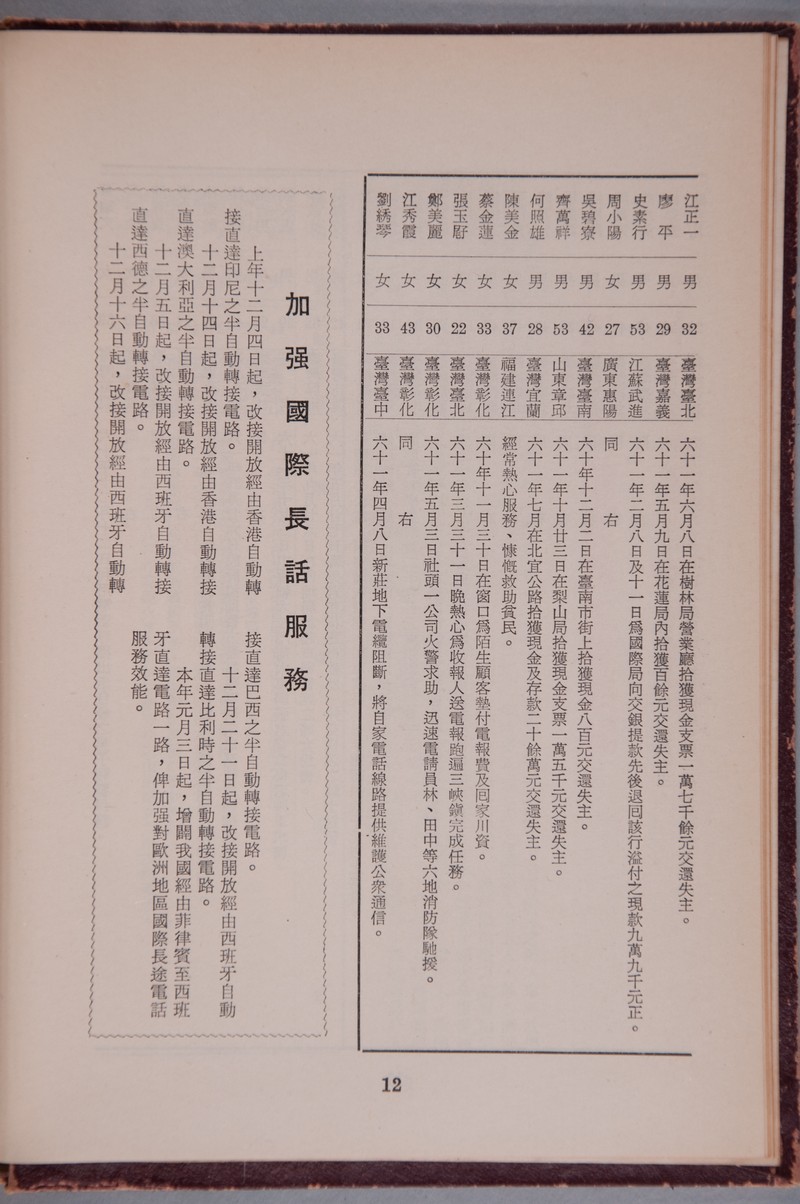 江正一 男 32 臺灣臺北 六十一年六月八日在樹林局營業廳拾獲現金支票一萬七千餘元交還失主。
廖平 男 29 臺灣嘉義 六十一年五月九日在花蓮局內拾獲百餘元交還失主。
史素行 男 53 江蘇武進 六十一年二月八日及十一日爲國際局向交銀提款先後退回該行溢付之現款九萬九千元正。
周小陽 女 27 廣東惠陽 同右
吳碧寮 男 42 臺灣臺南 六十年十二月二日在臺南市街上拾獲現金八百元交還失主。
齊萬祥 男 53 山東章邱 六十一年十月廿三日在梨山局拾獲現金支票一萬五千元交還失主。
何照雄 男 28 臺灣宜蘭 六十一年七月在北宜公路拾獲現金及存款二十餘萬元交還失主。
陳美金 女 37 福建連江 經常熱心服務、慷慨救助貧民。
蔡金蓮 女 33 臺灣彰化 六十年十一月三十日在窗口爲陌生顧客墊付電報費及回家川資。
張玉 女 22 臺灣臺北 六十一年三月三十一日晚熱心爲收報人送電報跑遍三峽鎭完成任務。
鄭美麗 女 30 臺灣彰化 六十一年五月三日社頭一公司火警求助，迅速電請員林、田中等六地消防隊馳援。
江秀霞 女 43 臺灣彰化 同右
劉綉琴 女 33 臺灣臺中 六十一年四月八日新莊地下電纜阻斷，將自家電話線路提供維護公衆通信。
加强國際長話服務
上年十二月四日起，改接開放經由香港自動轉
接直達印尼之半自動轉接電路。
十二月十四日起，改接開放經由香港自動轉接
直達澳大利亞之半自動轉接電路。
十二月五日起，改接開放經由西班牙自動轉接
直達西德之半自動轉接電路。
十二月十六日起，改接開放經由西班牙自動轉
接直達巴西之半自動轉接電路。
十二月二十一日起，改接開放經由西班牙自動
轉接直達比利時之半自動轉接電路。
本年元月三日起，增闢我國經由菲律賓至西班
牙直達電路一路，俾加强對歐洲地區國際長途電話
服務效能。
12